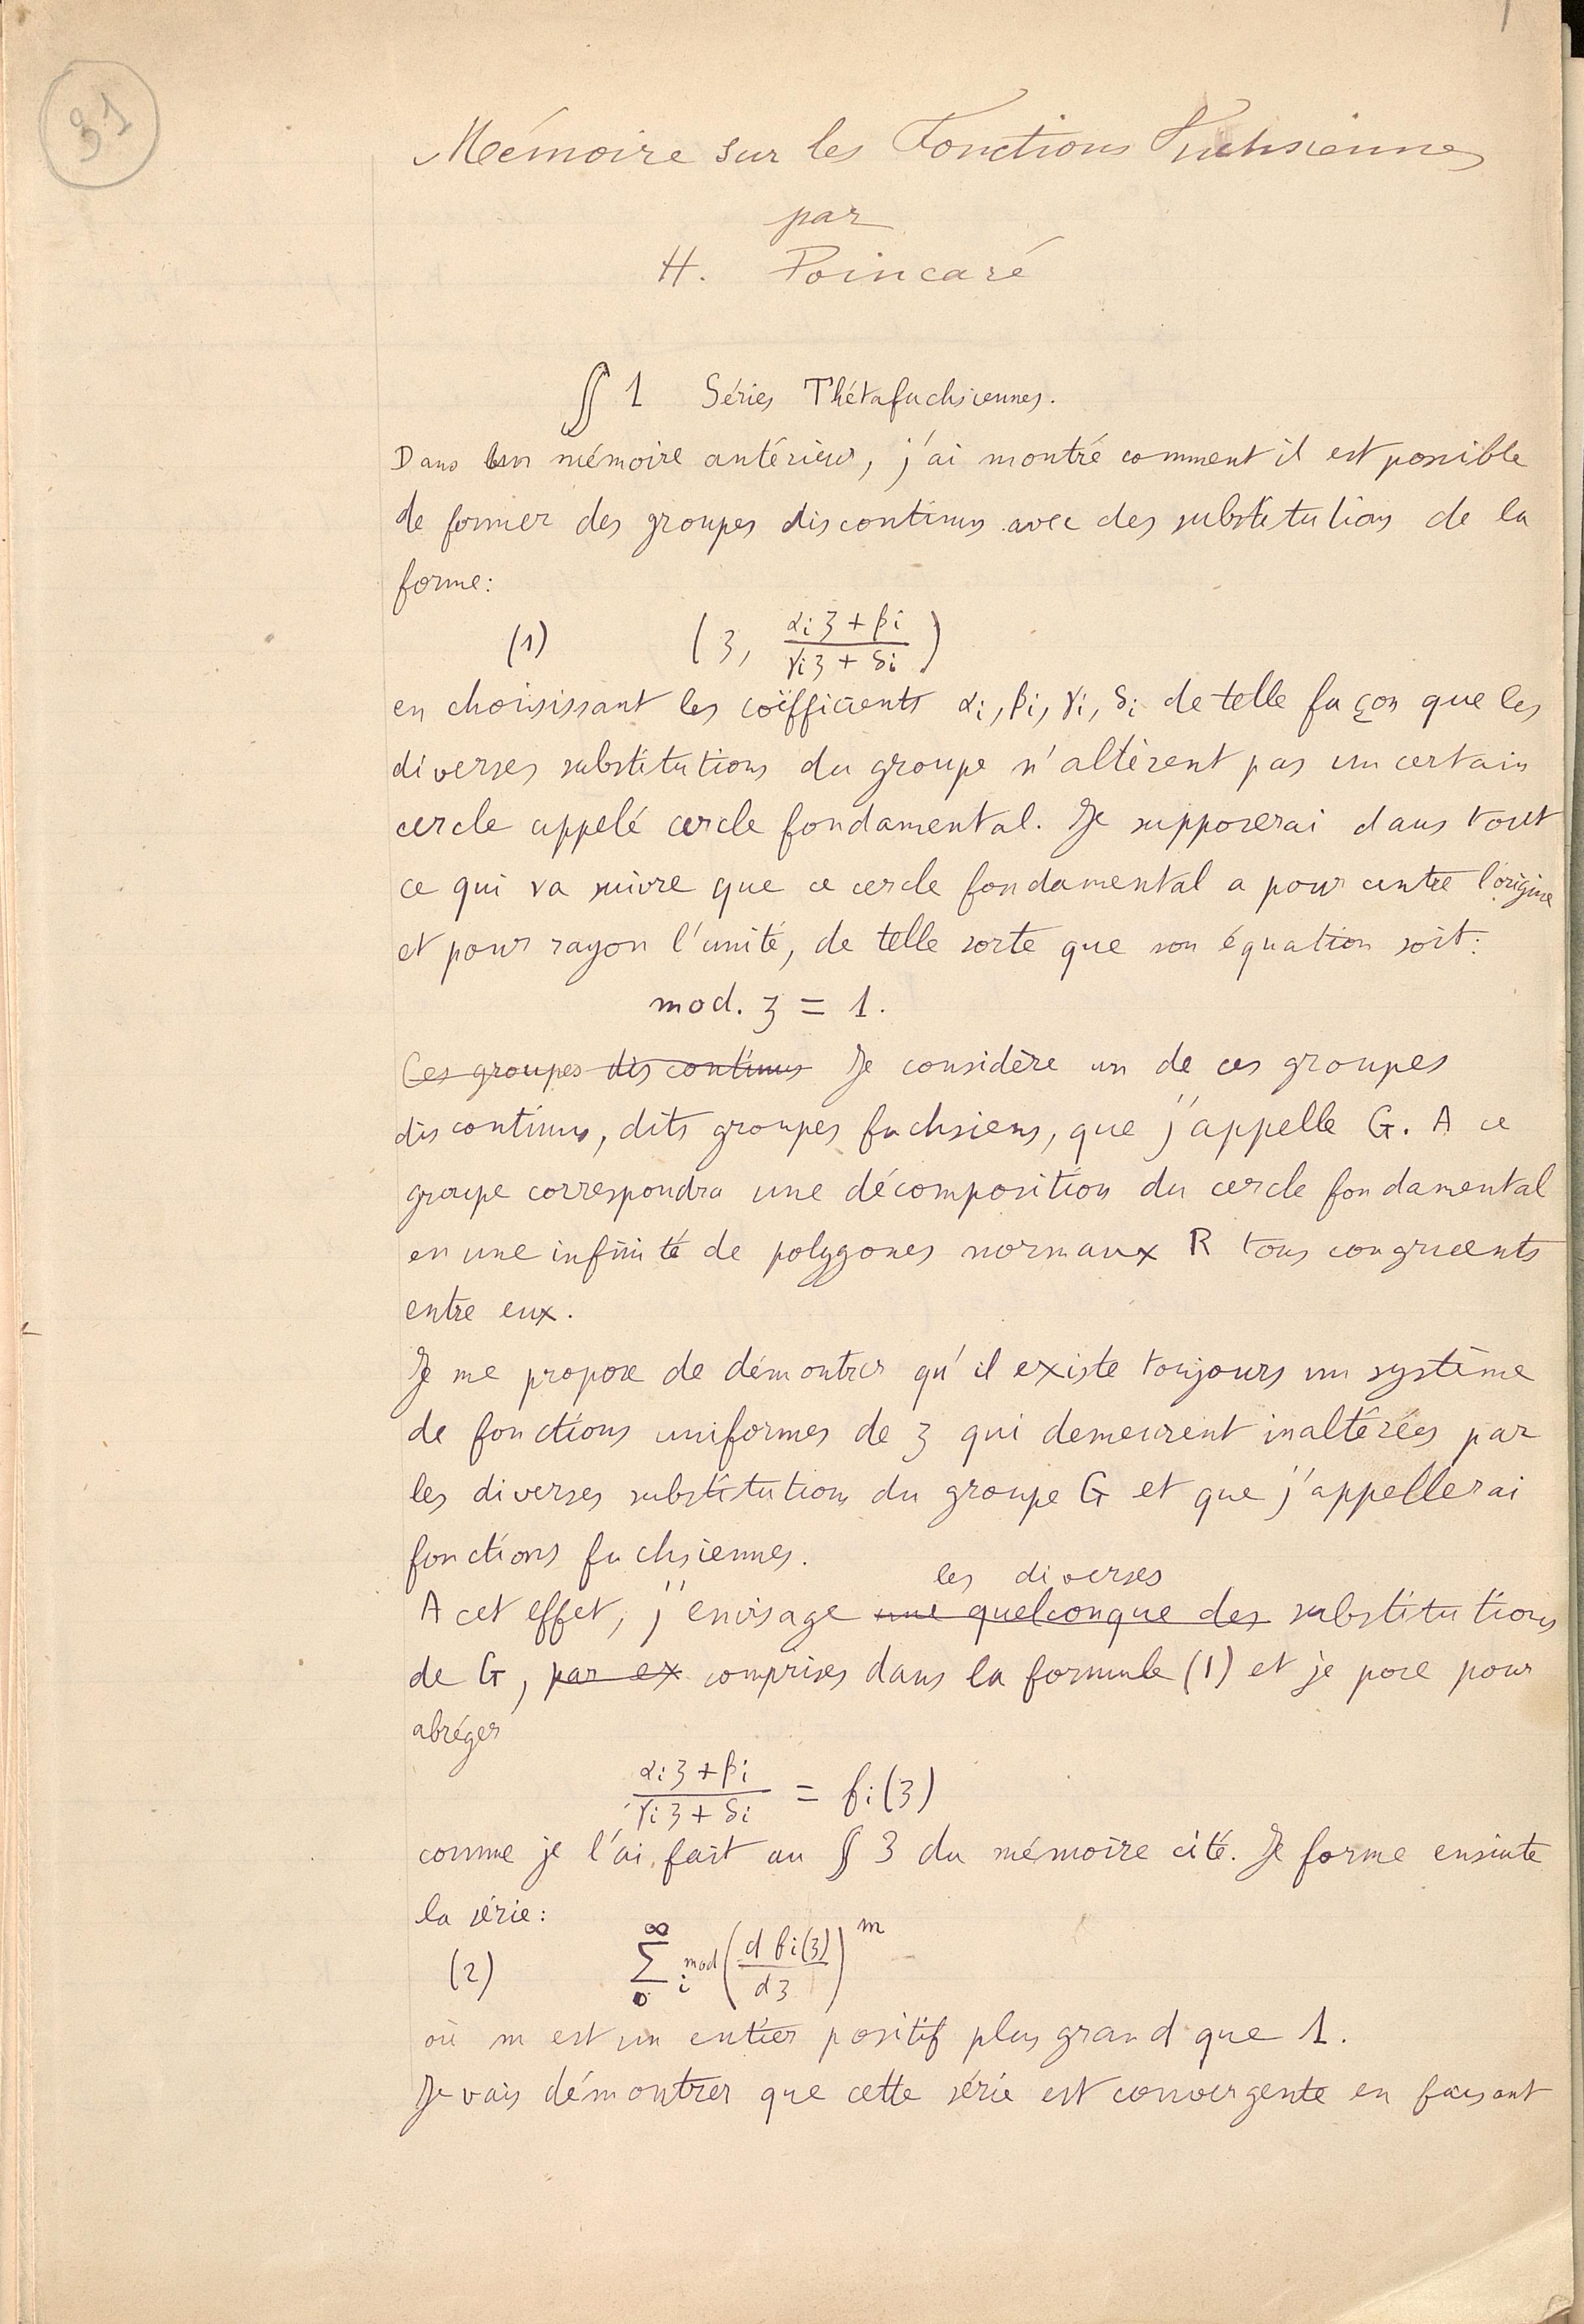 31
Mémoire sur les Fonctions Fuchsiennes
par
H. Poincaré
§ 1 Séries Thétafuchsiennes.
Dans un mémoire antérieur, j'ai montré comment il est possible
de former des groupes discontinus avec des substitutions de la
forme:
(1) (z, (αi z + βi)/(γi z + δi))
en choisissant les coëfficients αi, βi, γi, δi de telle façon que les
diverses substitutions du groupe n'altèrent pas un certain
cercle appelé cercle fondamental. Je supposerai dans tout
ce qui va suivre que ce cercle fondamental a pour centre l'origine
et pour rayon l'unité, de telle sorte que son équation soit:
mod. z = 1.
Ces groupes discontinus Je considère un de ces groupes
discontinus, dits groupes fuchsiens, que j'appelle G. A ce
groupe correspondra une décomposition du cercle fondamental
en une infinité de polygones normaux R tous congruents
entre eux.
Je me propose de démontrer qu'il existe toujours un système
de fonctions uniformes de z qui demeurent inaltérées par
les diverses substitutions du groupe G et que j'appellerai
fonctions fuchsiennes.
les diverses
A cet effet, j'envisage une quelconque des substitutions
de G, par ex comprises dans la formule (1) et je pose pour
abréger
(αi z + βi)/(γi z + δi) = fi(z)
comme je l'ai fait au § 3 du mémoire cité. Je forme ensuite
la série:
(2) ∞ Σ 0 i mod (d fi(z)/dz)^m
où m est un entier positif plus grand que 1.
Je vais démontrer que cette série est convergente en faisant